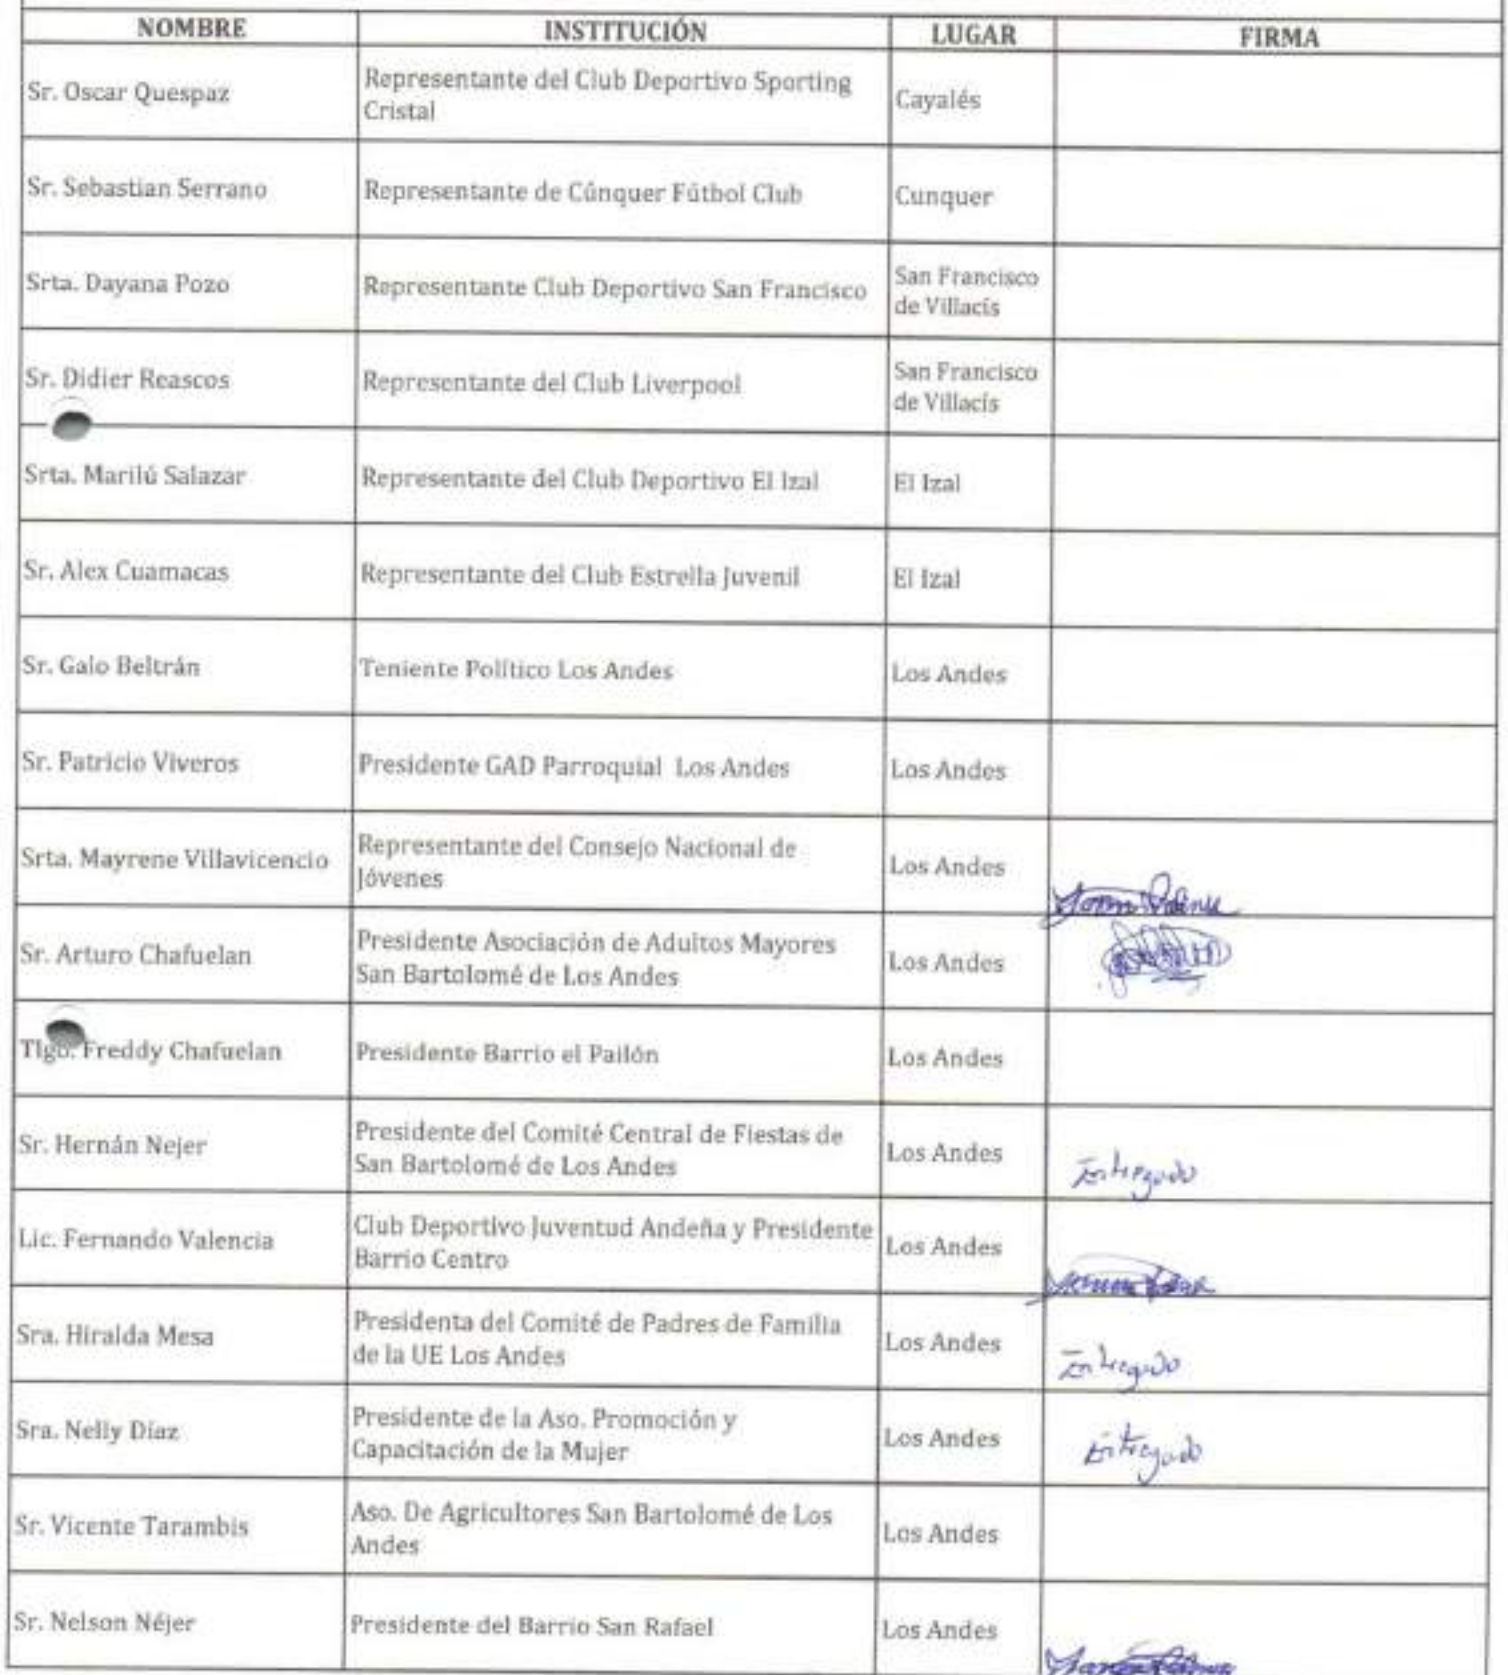 NOMBRE INSTITUCIÓN LUGAR FIRMA
Sr. Oscar Quespaz
Representante del Club Deportivo Sporting
Cristal
Cayalés
Sr. Sebastian Serrano
Representante de Cúnquer Fútbol Club
Cunquer
Srta. Dayana Pozo
Representante Club Deportivo San Francisco
San Francisco
de Villacís
Sr. Didier Reascos
Representante del Club Liverpool
San Francisco
de Villacís
Srta. Marilú Salazar
Representante del Club Deportivo El Izal
El Izal
Sr. Alex Cuamacas
Representante del Club Estrella Juvenil
El Izal
Sr. Galo Beltrán
Teniente Político Los Andes
Los Andes
Sr. Patricio Viveros
Presidente GAD Parroquial Los Andes
Los Andes
Srta. Mayrene Villavicencio
Representante del Consejo Nacional de
Jóvenes
Los Andes
Sr. Arturo Chafuelan
Presidente Asociación de Adultos Mayores
San Bartolomé de Los Andes
Los Andes
Tlgo. Freddy Chafuelan
Presidente Barrio el Pailón
Los Andes
Sr. Hernán Nejer
Presidente del Comité Central de Fiestas de
San Bartolomé de Los Andes
Los Andes
Entregado
Lic. Fernando Valencia
Club Deportivo Juventud Andeña y Presidente
Barrio Centro
Los Andes
Sra. Hiralda Mesa
Presidenta del Comité de Padres de Familia
de la UE Los Andes
Los Andes
Entregado
Sra. Nelly Díaz
Presidente de la Aso. Promoción y
Capacitación de la Mujer
Los Andes
Entregado
Sr. Vicente Tarambis
Aso. De Agricultores San Bartolomé de Los
Andes
Los Andes
Sr. Nelson Néjer
Presidente del Barrio San Rafael
Los Andes